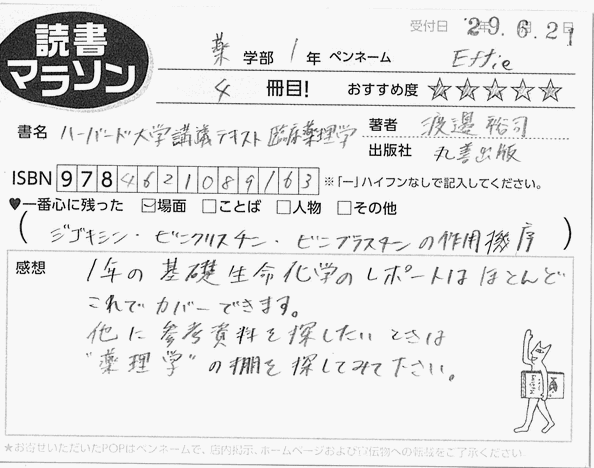 受付日 '29年6月21日
読書
マラソン
薬 学部 1 年 ペンネーム Effie
4 冊目! おすすめ度 ☆☆☆☆☆
書名 ハーバード大学講義テキスト臨床薬理学
著者 渡邊裕司
出版社 丸善出版
ISBN 9784621089163 ※「ー」ハイフンなしで記入してください。
♥一番心に残った ☑場面 □ことば □人物 □その他
(ジゴキシン・ビンクリスチン・ビンブラスチンの作用機序)
感想
1年の基礎生命化学のレポートはほとんど
これでカバーできます。
他に参考資料を探したいときは
"薬理学"の棚を探してみて下さい。
★お寄せいただいたPOPはペンネームで、店内掲示、ホームページおよび宣伝物への転載をご了承ください。